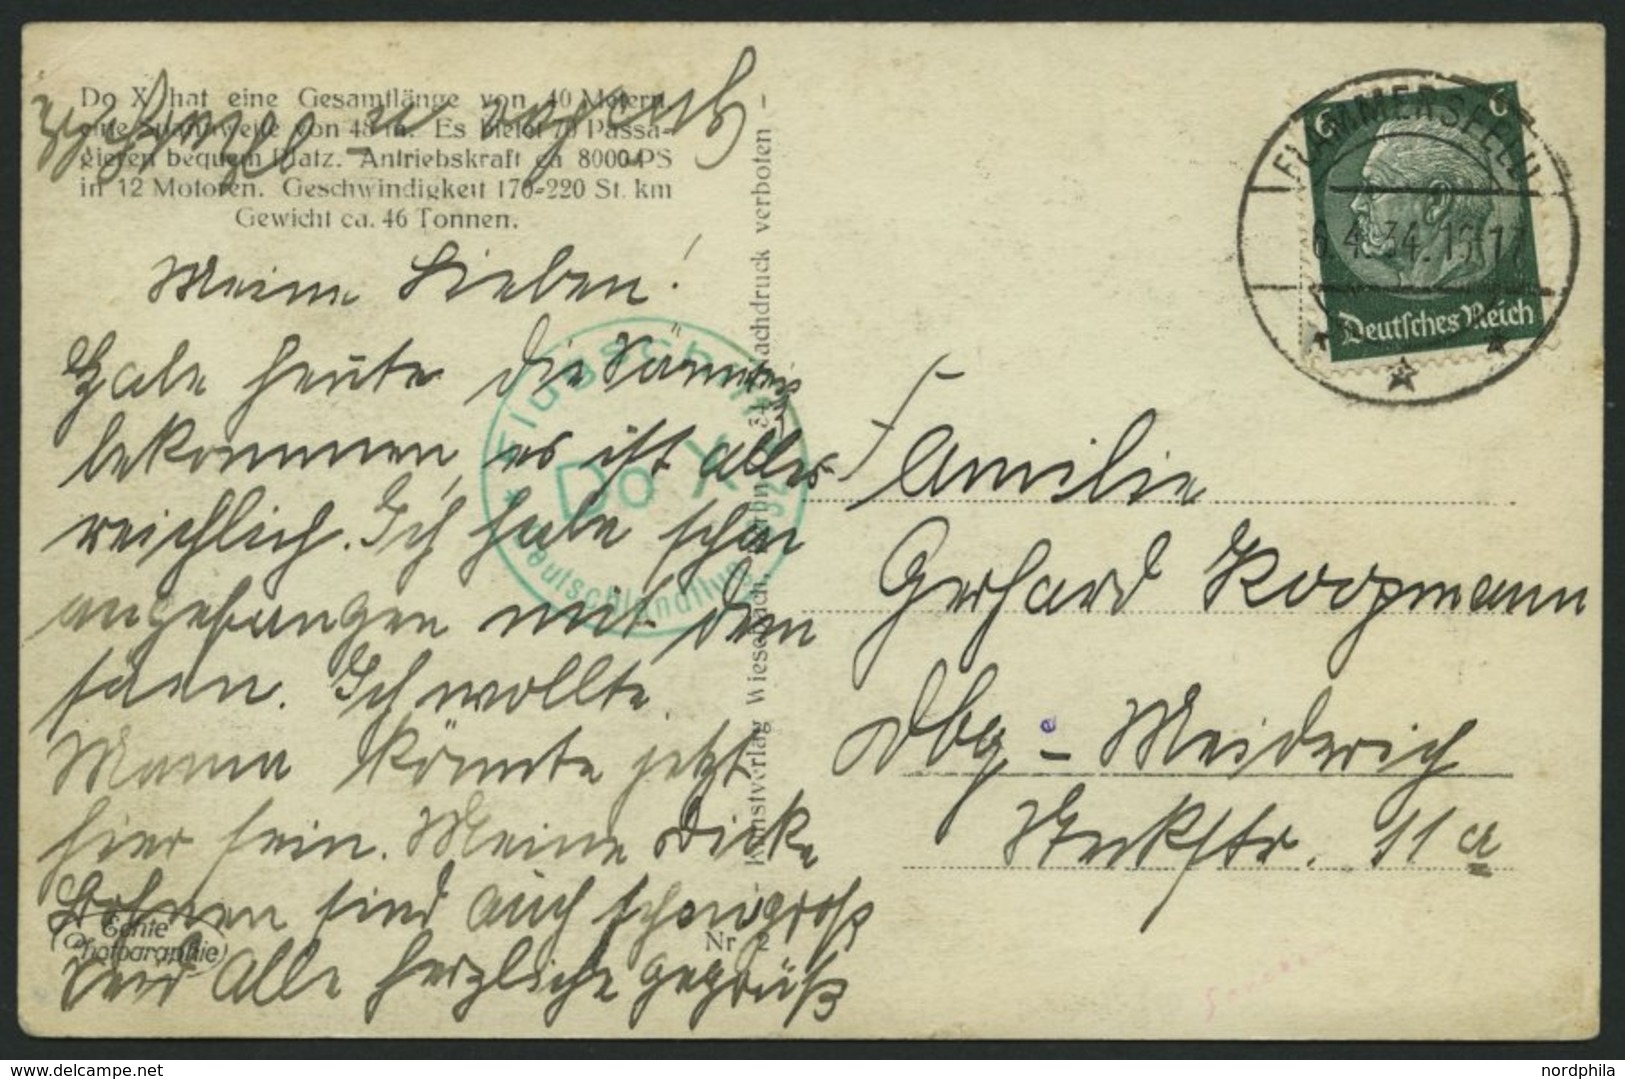 Do X hat eine Gesamtlänge von 40 Metern,
eine Spannweite von 48 m. Es bietet 70 Passa-
gieren bequem Platz. Antriebskraft ca 8000 PS
in 12 Motoren. Geschwindigkeit 170-220 St. km
Gewicht ca. 46 Tonnen.
Meine Lieben!
Habe heute die
bekommen, es ist alles
reichlich. Ich habe schon
angefangen mit dem
säen. Ich wollte
Mama könnte jetzt
hier sein. Meine dicke
Bohnen sind auch schon groß
seid alle herzlichst gegrüßt
Echte
Photographie
Nr. 2
Kunstverlag Wiesebach, Berlin 34 Nachdruck verboten -
Flugschiff
Do X
Deutschlandflug 1932
FLAMMERSFELD
6.4.34.15-17
6 6
Deutsches Reich
Familie
Gerhard Koopmann
Dbg - Meiderich
11a
delcampe.net
nordphila